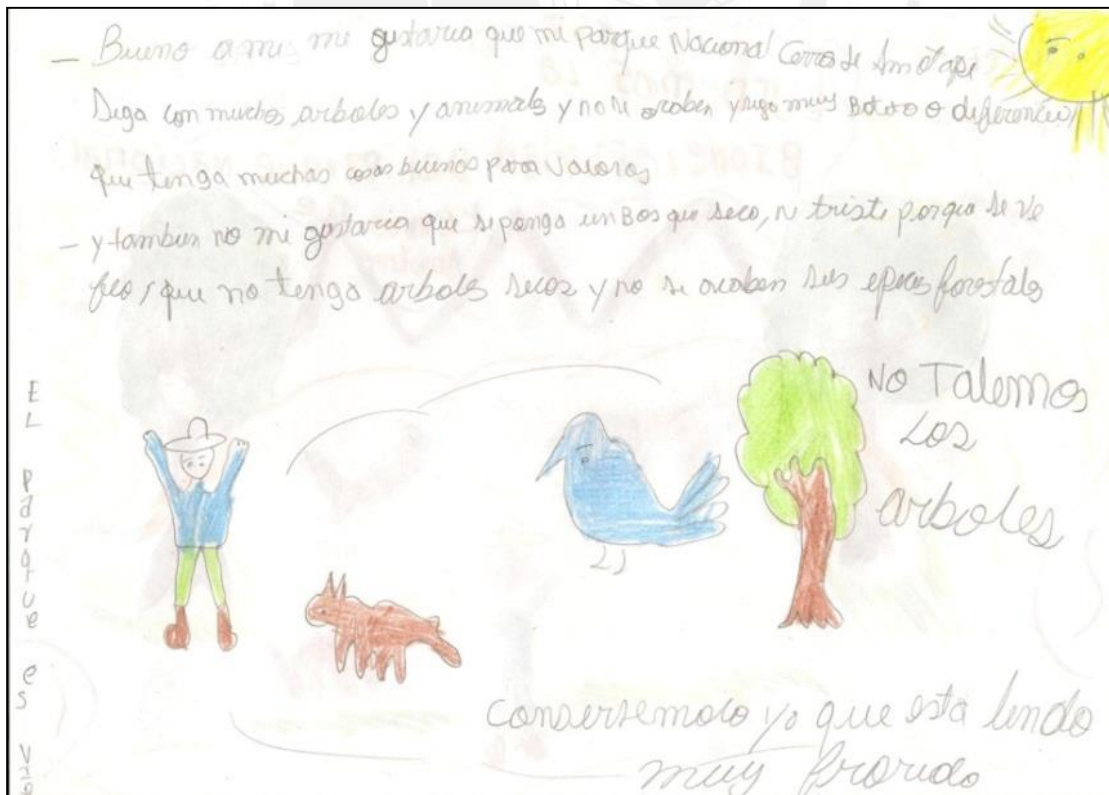 – Bueno a mi mi gustaria que mi parque Nacional Cerros de Amotape
Siga con muchos arboles y animales y no se acaben y siga muy
que tenga muchas cosas buenas para valorar
– y tambien no mi gustaria que se ponga un Bosque seco, ni triste porque se ve
feo, que no tenga arboles secos y no se acaben sus epeces forestales
No Talemos
Los
arboles
EL parque es
consersemolo ya que esta lindo
muy